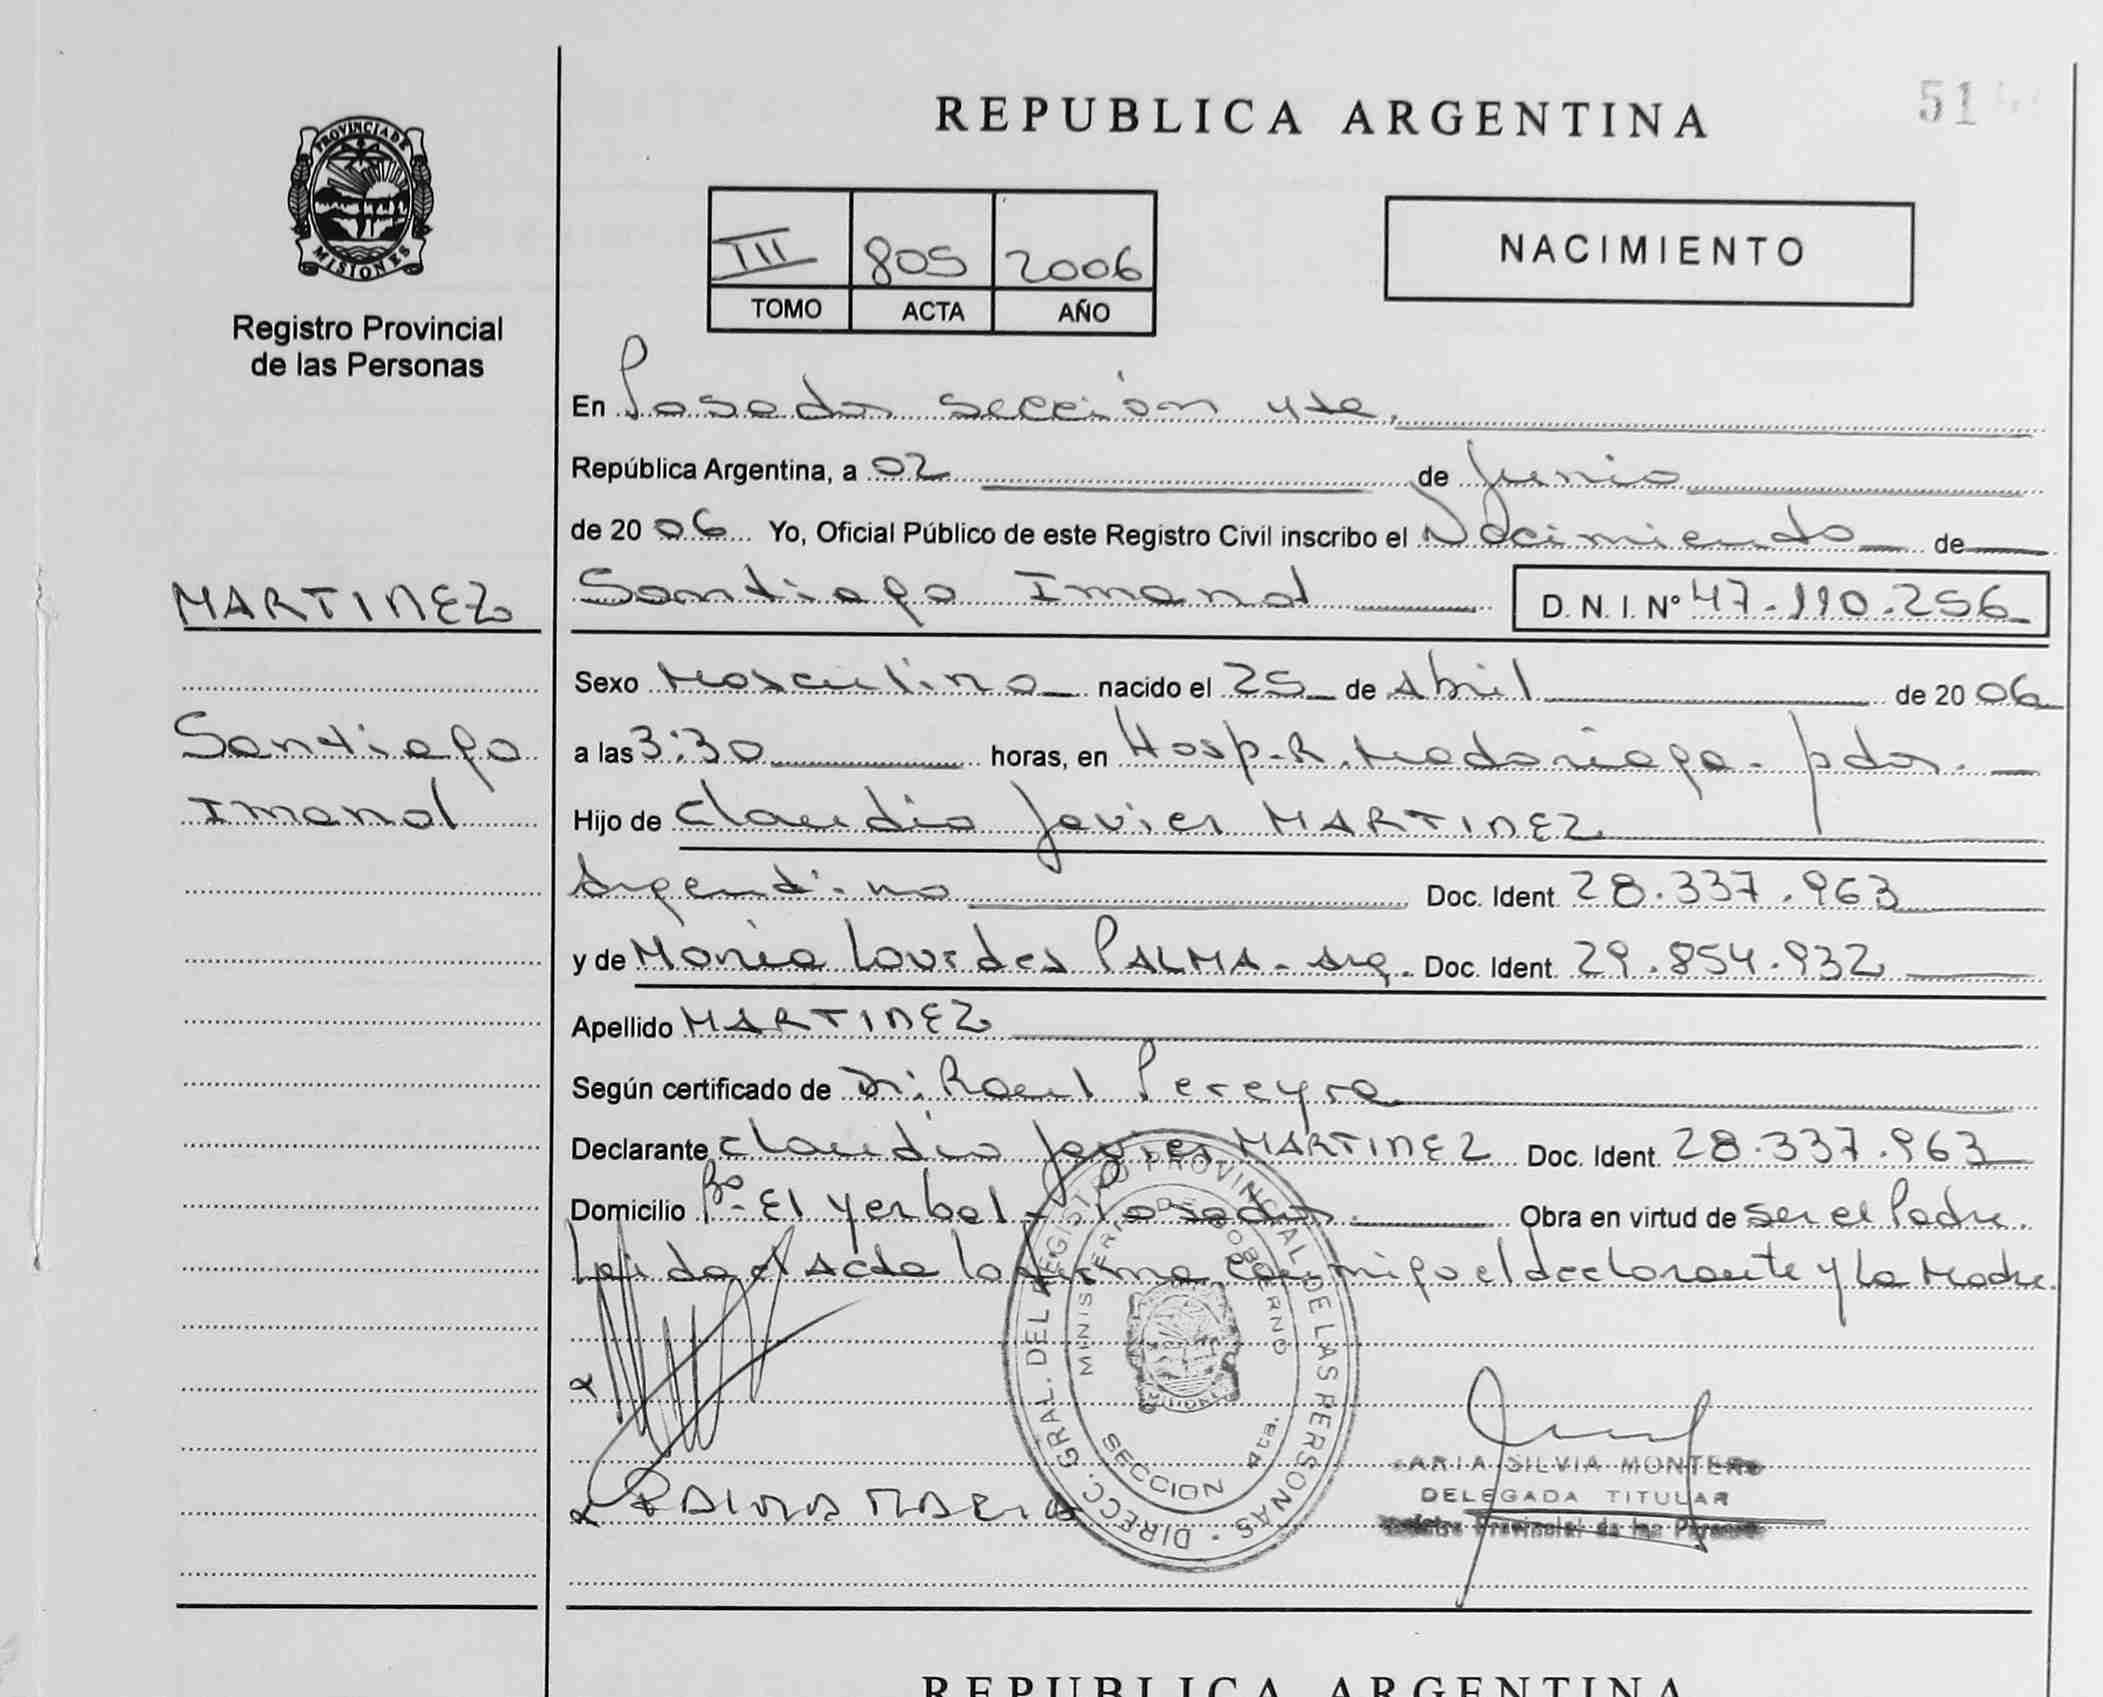 REPUBLICA ARGENTINA
51
PROVINCIA DE
MISIONES
Registro Provincial
de las Personas
III 805 2006
TOMO ACTA AÑO
NACIMIENTO
En Posadas sección 4ta.
República Argentina, a 02 de Junio
de 2006 Yo, Oficial Público de este Registro Civil inscribo el Nacimiento de
MARTINEZ Santiago Imanol D. N. I. Nº 47.110.256
Sexo Masculino nacido el 25 de Abril de 2006
Santiago a las 3:30 horas, en Hosp. R. Madariaga. pdas.
Imanol Hijo de Claudio Javier MARTINEZ
Argentino Doc. Ident. 28.337.963
y de María Lourdes PALMA - Arg. Doc. Ident. 29.854.932
Apellido MARTINEZ
Según certificado de Dr: Raul Pereyra
Declarante Claudio Javier MARTINEZ Doc. Ident. 28.337.963
Domicilio Bº El Yerbal - Posadas. Obra en virtud de ser el Padre.
Leida el Acta la firma conmigo el declarante y la Madre.
DIRECC. GRAL. DEL REGISTRO PROVINCIAL DE LAS PERSONAS
MINISTERIO DE GOBIERNO
SECCION 4ta.
ARIA SILVIA MONTERO
DELEGADA TITULAR
Registro Provincial de las Personas
PALMA MARIA
REPUBLICA ARGENTINA